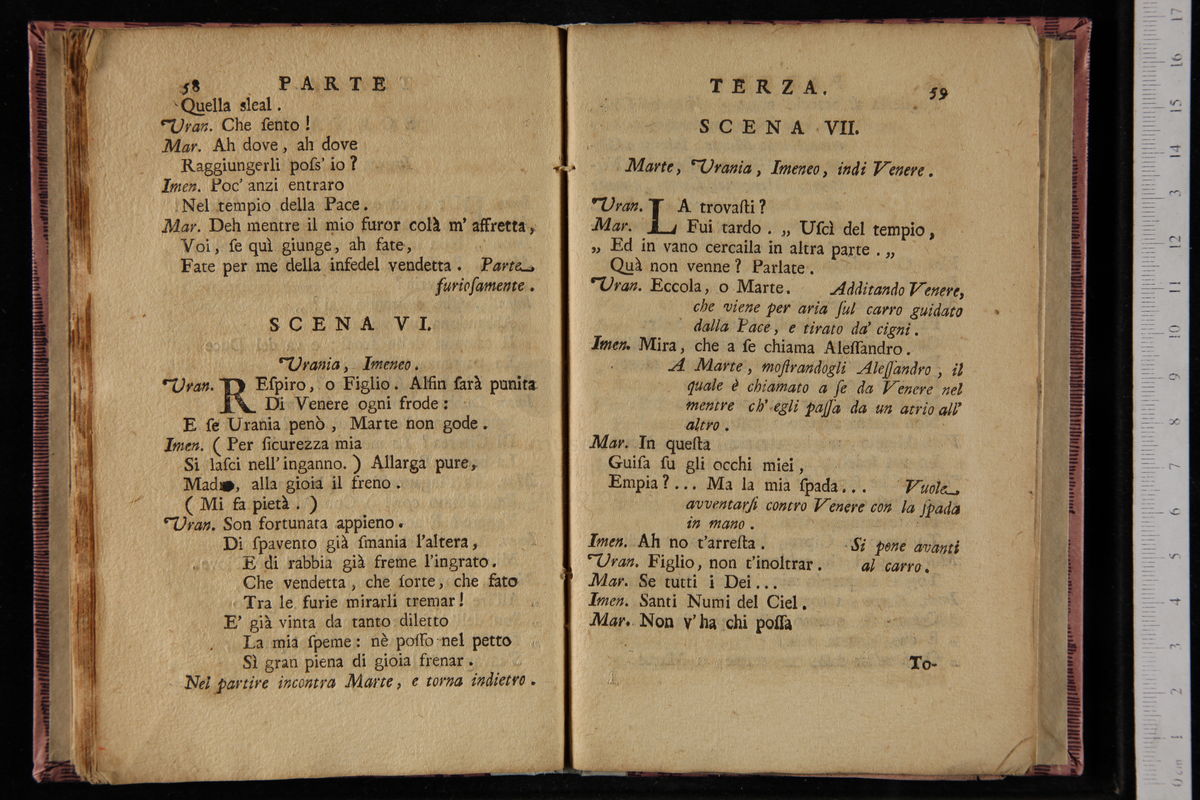 58 PARTE
Quella sleal.
Uran. Che ſento!
Mar. Ah dove, ah dove
Raggiungerli poſs' io?
Imen. Poc' anzi entraro
Nel tempio della Pace.
Mar. Deh mentre il mio furor colà m' affretta,
Voi, ſe quì giunge, ah fate,
Fate per me della infedel vendetta. Parte
furioſamente.
SCENA VI.
Urania, Imeneo.
Uran. REſpiro, o Figlio. Alfin ſarà punita
Di Venere ogni frode:
E ſe Urania penò, Marte non gode.
Imen. (Per ſicurezza mia
Si laſci nell' inganno.) Allarga pure,
Madre, alla gioia il freno.
(Mi fa pietà.)
Uran. Son fortunata appieno.
Di ſpavento già ſmania l'altera,
E di rabbia già freme l'ingrato.
Che vendetta, che ſorte, che fato
Tra le furie mirarli tremar!
E' già vinta da tanto diletto
La mia ſpeme: nè poſſo nel petto
Sì gran piena di gioia frenar.
Nel partire incontra Marte, e torna indietro.
TERZA. 59
SCENA VII.
Marte, Urania, Imeneo, indi Venere.
Uran. LA trovaſti?
Mar. Fui tardo. „ Uſcì del tempio,
„ Ed in vano cercaila in altra parte. „
Quà non venne? Parlate.
Uran. Eccola, o Marte. Additando Venere,
che viene per aria ſul carro guidato
dalla Pace, e tirato da' cigni.
Imen. Mira, che a ſe chiama Aleſſandro.
A Marte, moſtrandogli Aleſſandro, il
quale è chiamato a ſe da Venere nel
mentre ch' egli paſſa da un atrio all'
altro.
Mar. In queſta
Guiſa ſu gli occhi miei,
Empia?... Ma la mia ſpada... Vuole
avventarſi contro Venere con la ſpada
in mano.
Imen. Ah no t'arreſta. Si pone avanti
Uran. Figlio, non t'inoltrar. al carro.
Mar. Se tutti i Dei...
Imen. Santi Numi del Ciel.
Mar. Non v' ha chi poſſa
To-
0 cm 1 2 3 4 5 6 7 8 9 10 11 12 13 14 15 16 17